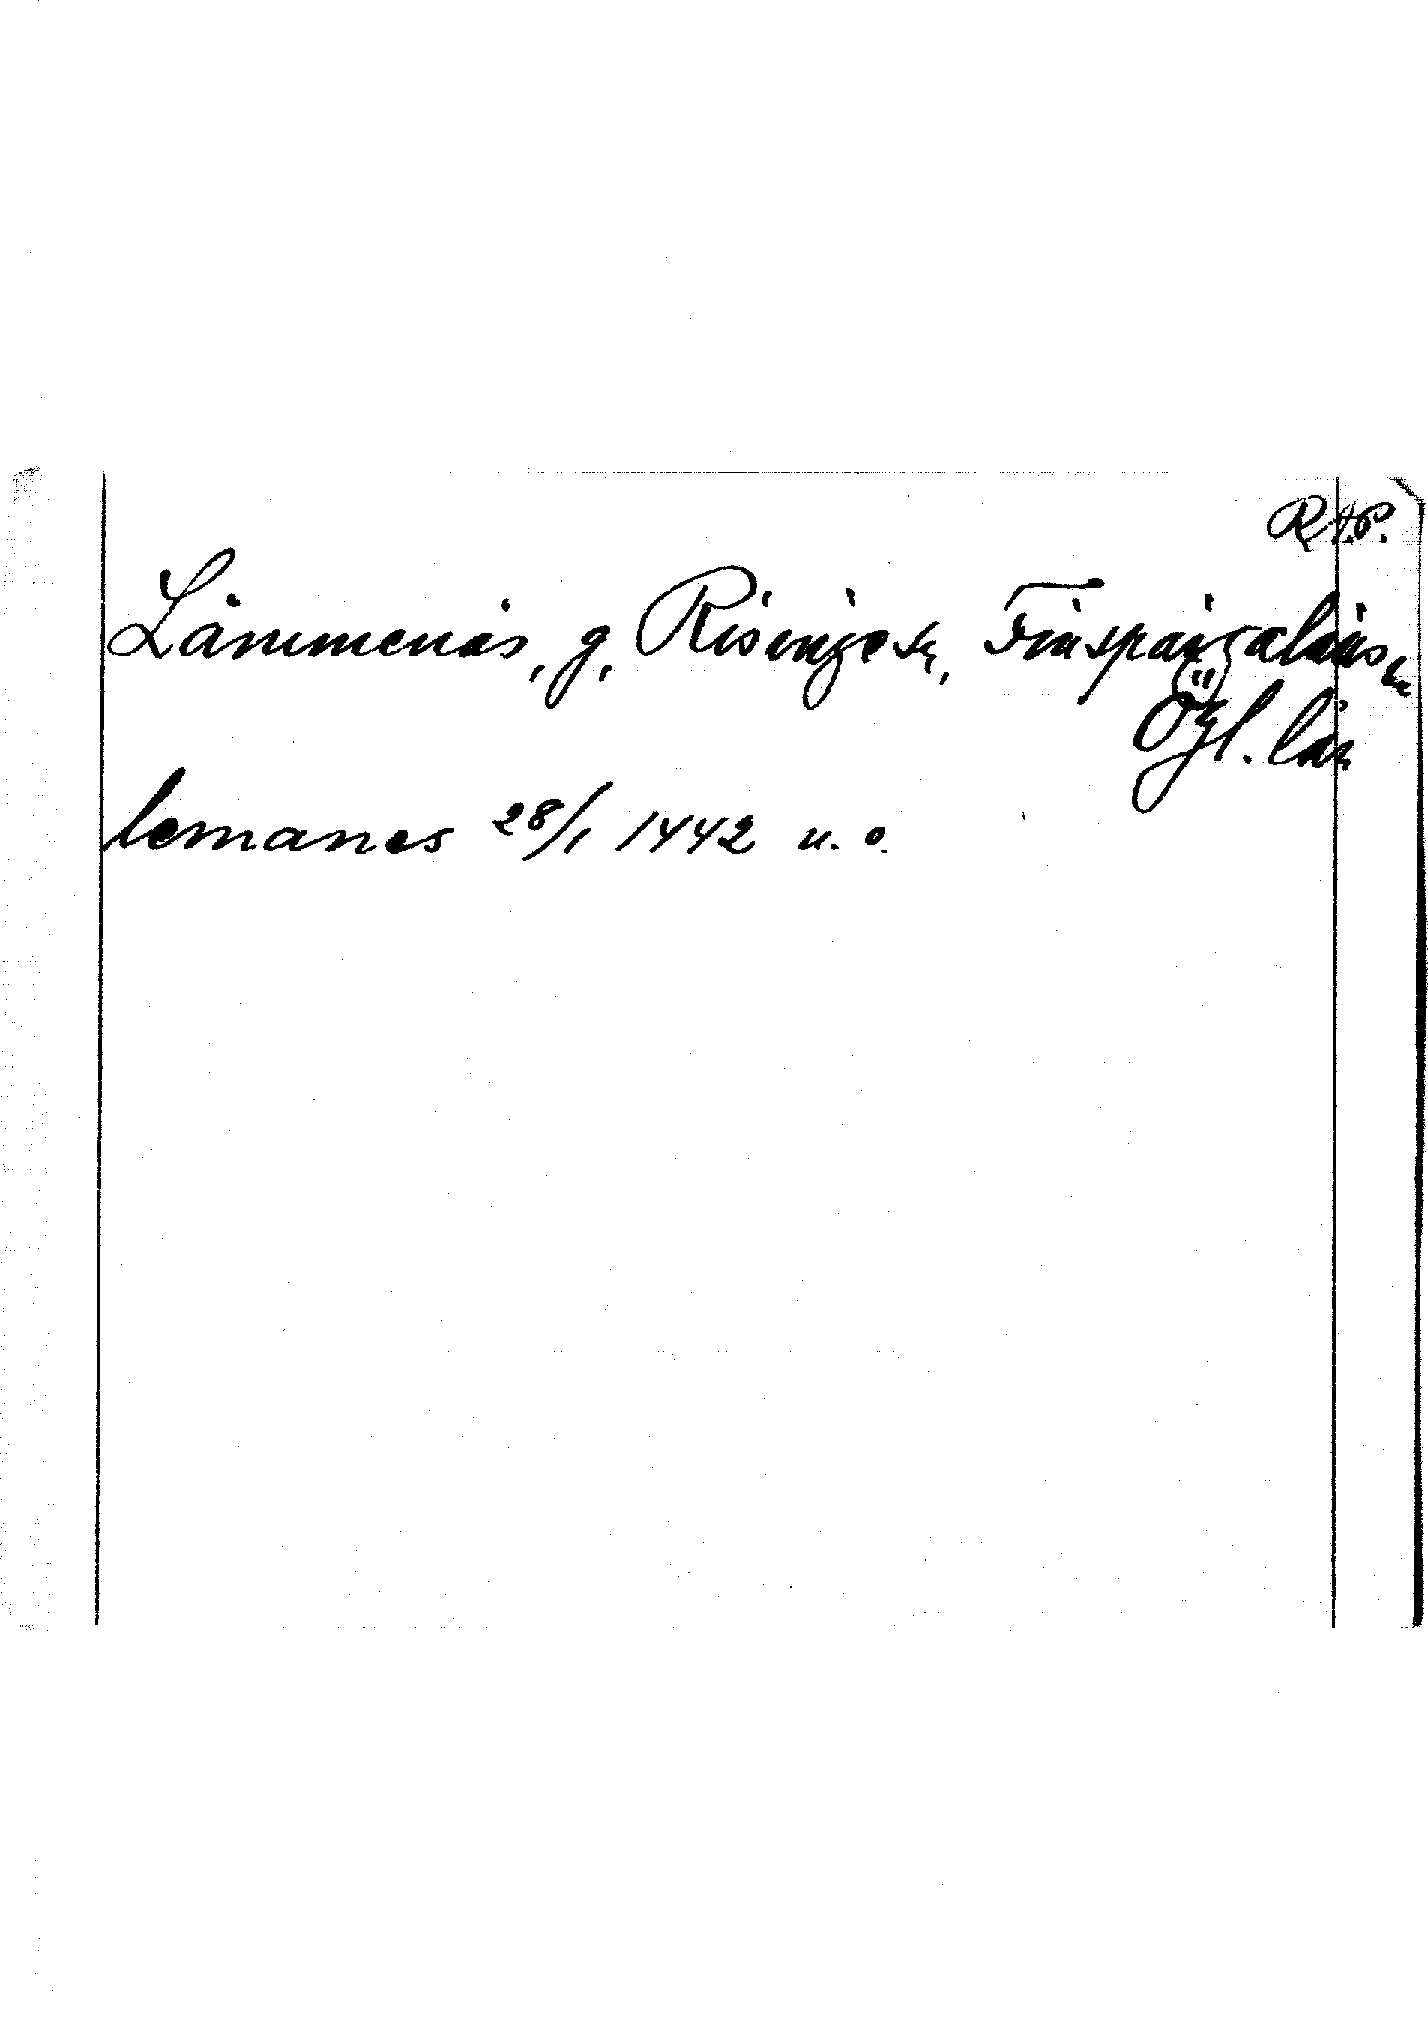 R.A.P.
Lämmenäs, g, Risinge sn, Finspångaläns h
Ögl. län
lemanes 28/1 1442 u. o.